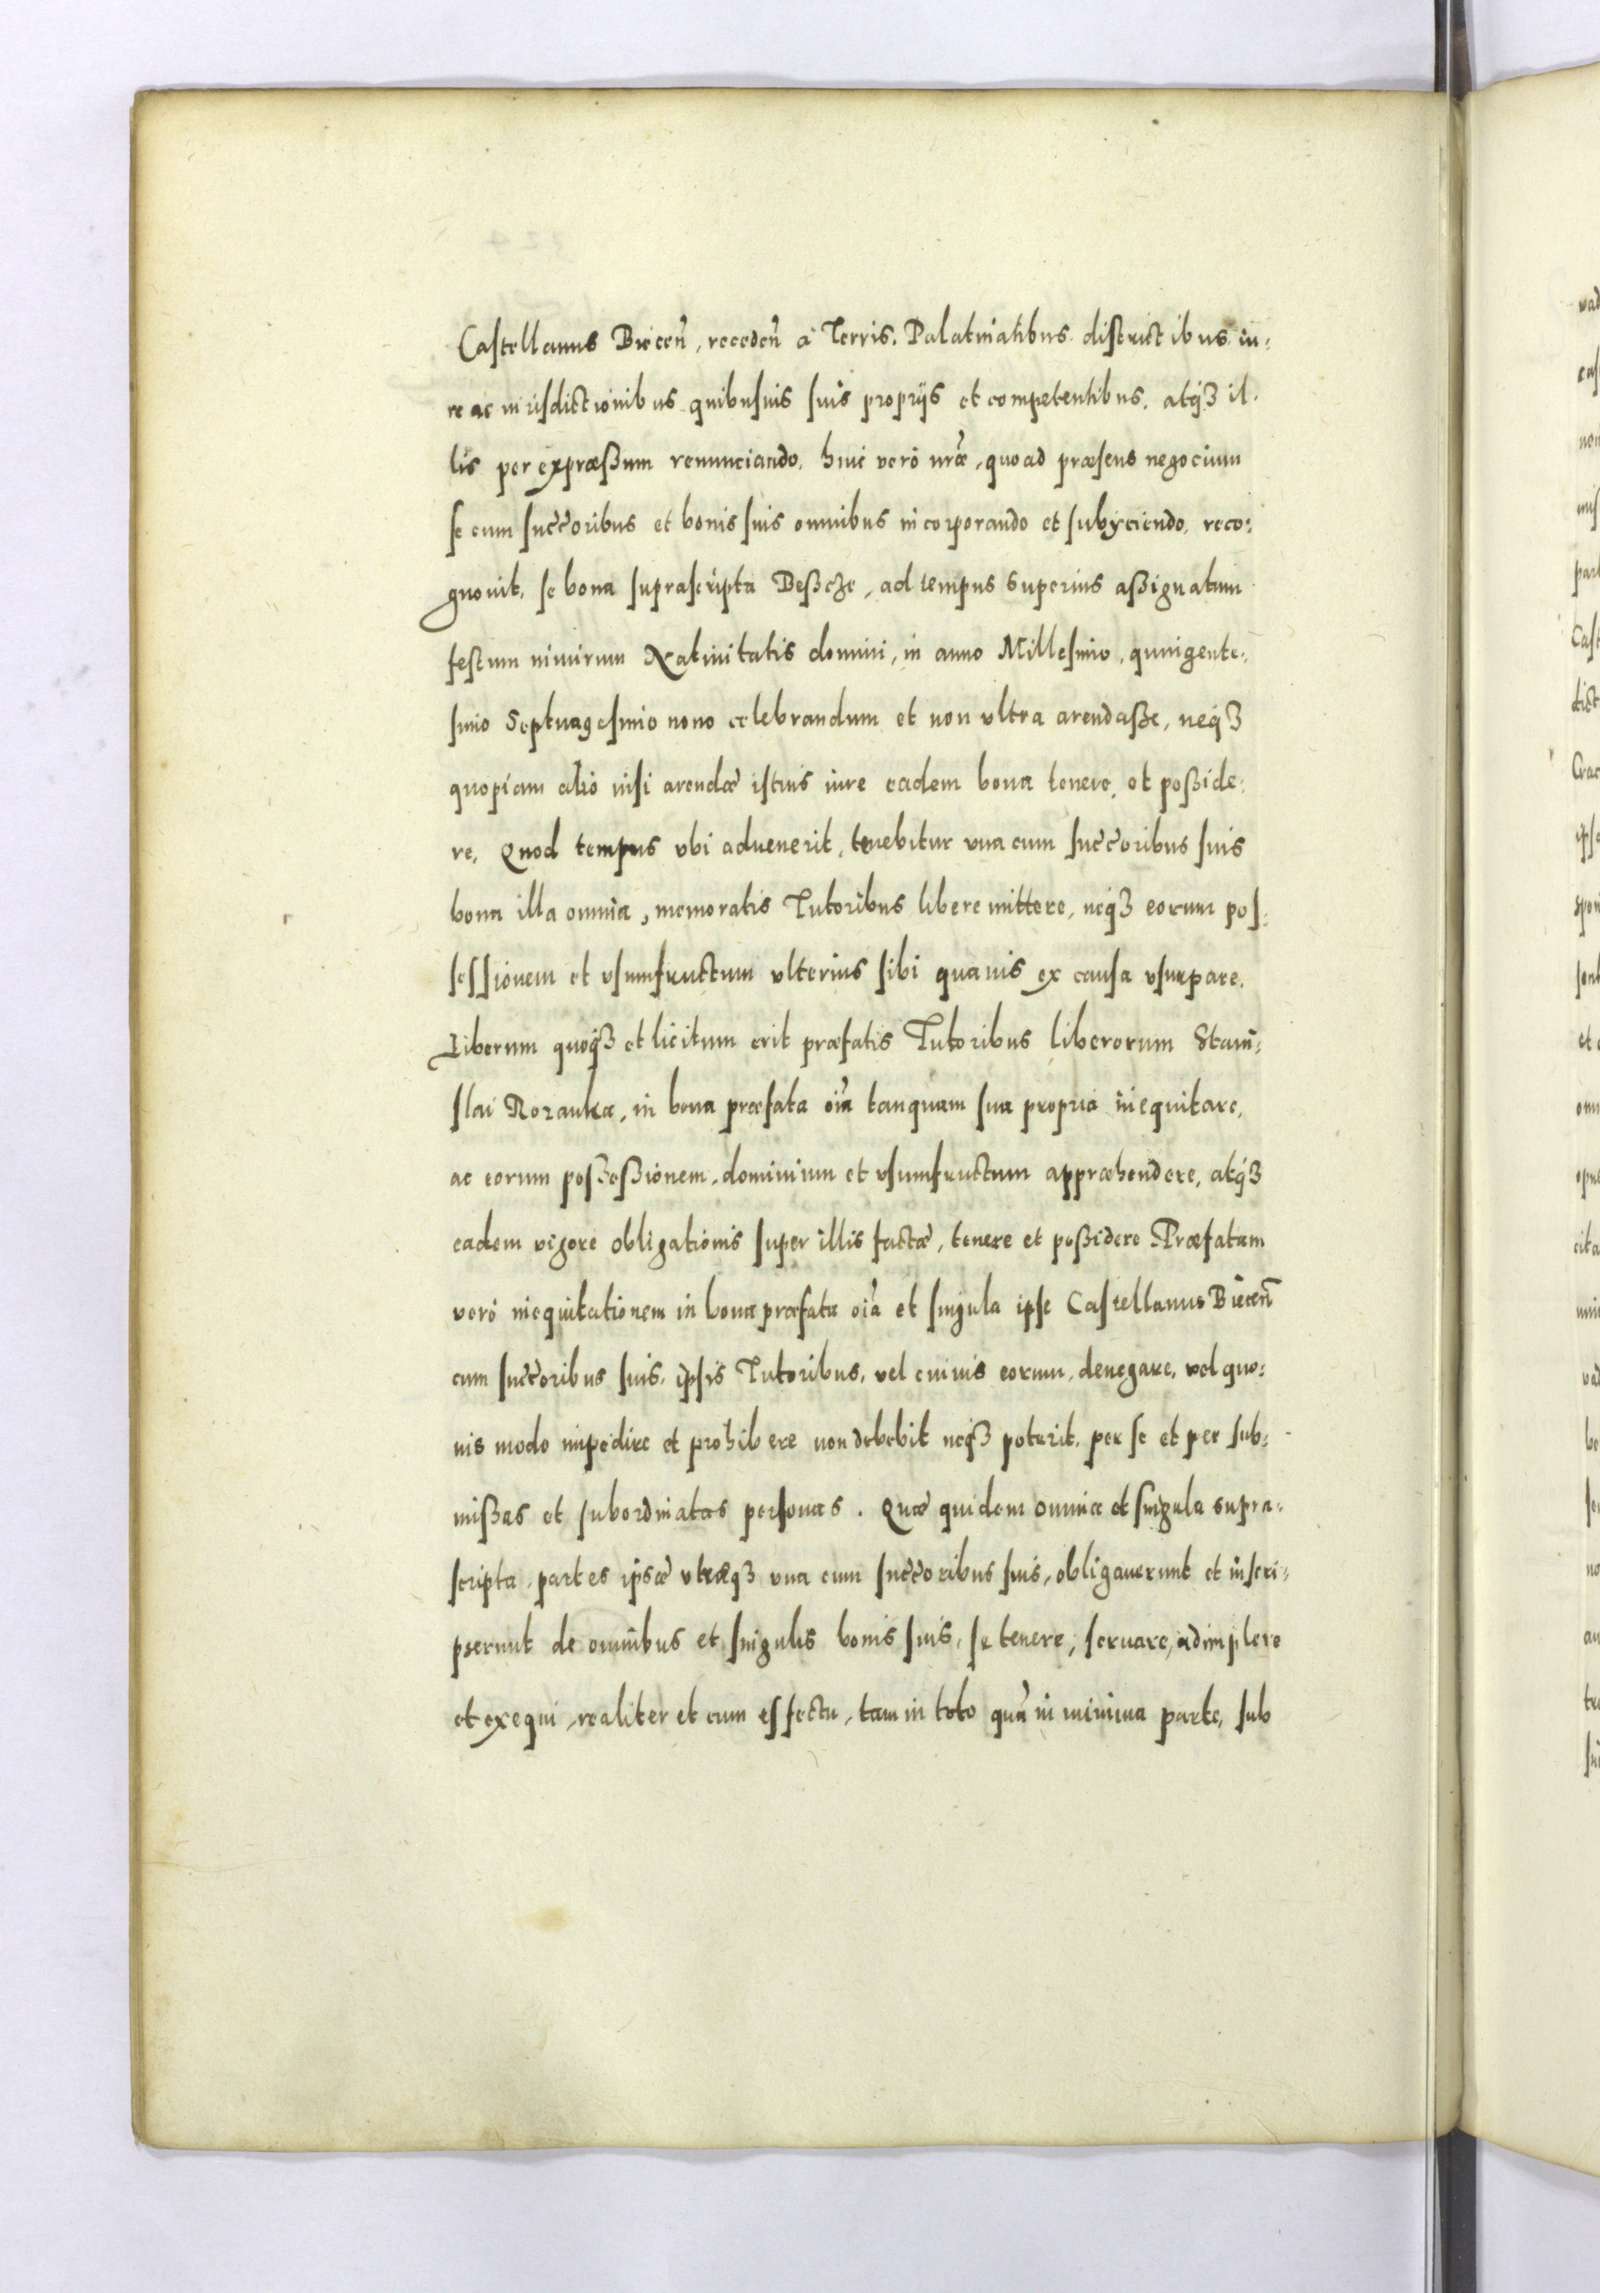 Castellanus Biecen̄, receden̄ à Terris, Palatinatibus districtibus iu-
re ac iurisdictionibus quibusuis suis proprijs et competentibus, atq3 il-
lis per expræßum renunciando, huic verò nr̃æ, quoad præsens negocium
se cum succ̃oribus et bonis suis omnibus incorporando et subyciendo, reco-
gnouit, se bona suprascripta Beßcze, ad tempus superius aßignatum
festum nimirum Natiuitatis domini, in anno Millesimo, quingente-
simo Septuagesimo nono celebrandum et non vltra arendaße, neq3
quopiam alio nisi arendæ istius iure eadem bona tenere, et poßide-
re, Quod tempus vbi aduenerit, tenebitur vna cum succ̃oribus suis
bona illa omnia, memoratis Tutoribus libere mittere, neq3 eorum pos-
sessionem et vsumfructum vlterius sibi quauis ex causa vsurpare.
Liberum quoq3 et licitum erit præfatis Tutoribus liberorum Stani-
slai Rozanka, in bona præfata oĩa tanquam sua propria inequitare,
ac eorum possesßionem, dominium et vsumfructum appræhendere, atq3
eadem vigore obligationis super illis factæ, tenere et poßidere Præfatam
verò inequitationem in bona præfata oĩa et singula ipse Castellanus Biecen̄
cum succ̃oribus suis, ipsis Tutoribus, vel cuiuis eorum, denegare, vel quo-
uis modo impedire et prohibere non debebit neq3 poterit, per se et per sub-
mißas et subordinatas personas. Quæ quidem omnia et singula supra-
scripta, partes ipsæ vtræq3 vna cum succ̃oribus suis, obligauerunt et inscri-
pserunt de omnibus et singulis bonis suis, se tenere, seruare, adimplere
et exequi, realiter et cum effectu, tam in toto quã in minima parte, sub